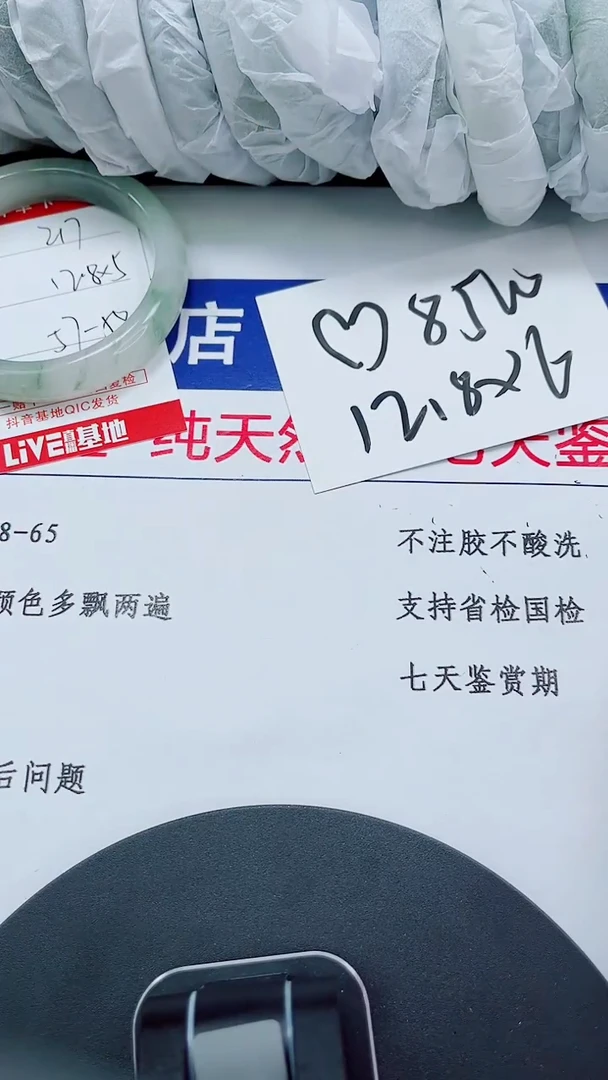 217
12.8×5
57-
店
♡ 85
12.8×6
抖音基地QIC发货
LiVE直播基地
纯天然
七天鉴
8-65
不注胶不酸洗
颜色多飘两遍
支持省检国检
七天鉴赏期
后问题